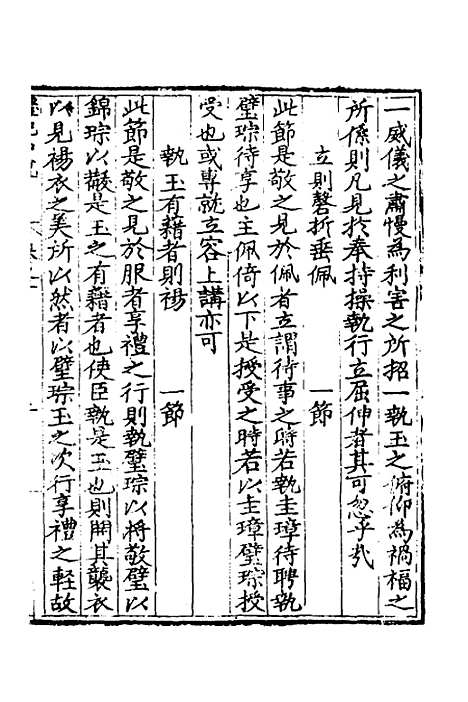 一威儀之肅慢為利害之所招一執玉之俯仰為禍福之
所係則凡見於奉持操執行立屈伸者其可忽乎哉
立則磬折垂佩　一節
此節是敬之見於佩者立謂待事之時若執圭璋待聘執
璧琮待享也主佩倚以下是授受之時若以圭璋璧琮授
受也或專就立容上講亦可
執玉有藉者則裼　一節
此節是敬之見於服者享禮之行則執璧琮以將敬璧以
錦琮以黻是玉之有藉者也使臣執是玉也則開其襲衣
以見裼衣之美所以然者以璧琮玉之次行享禮之輕故